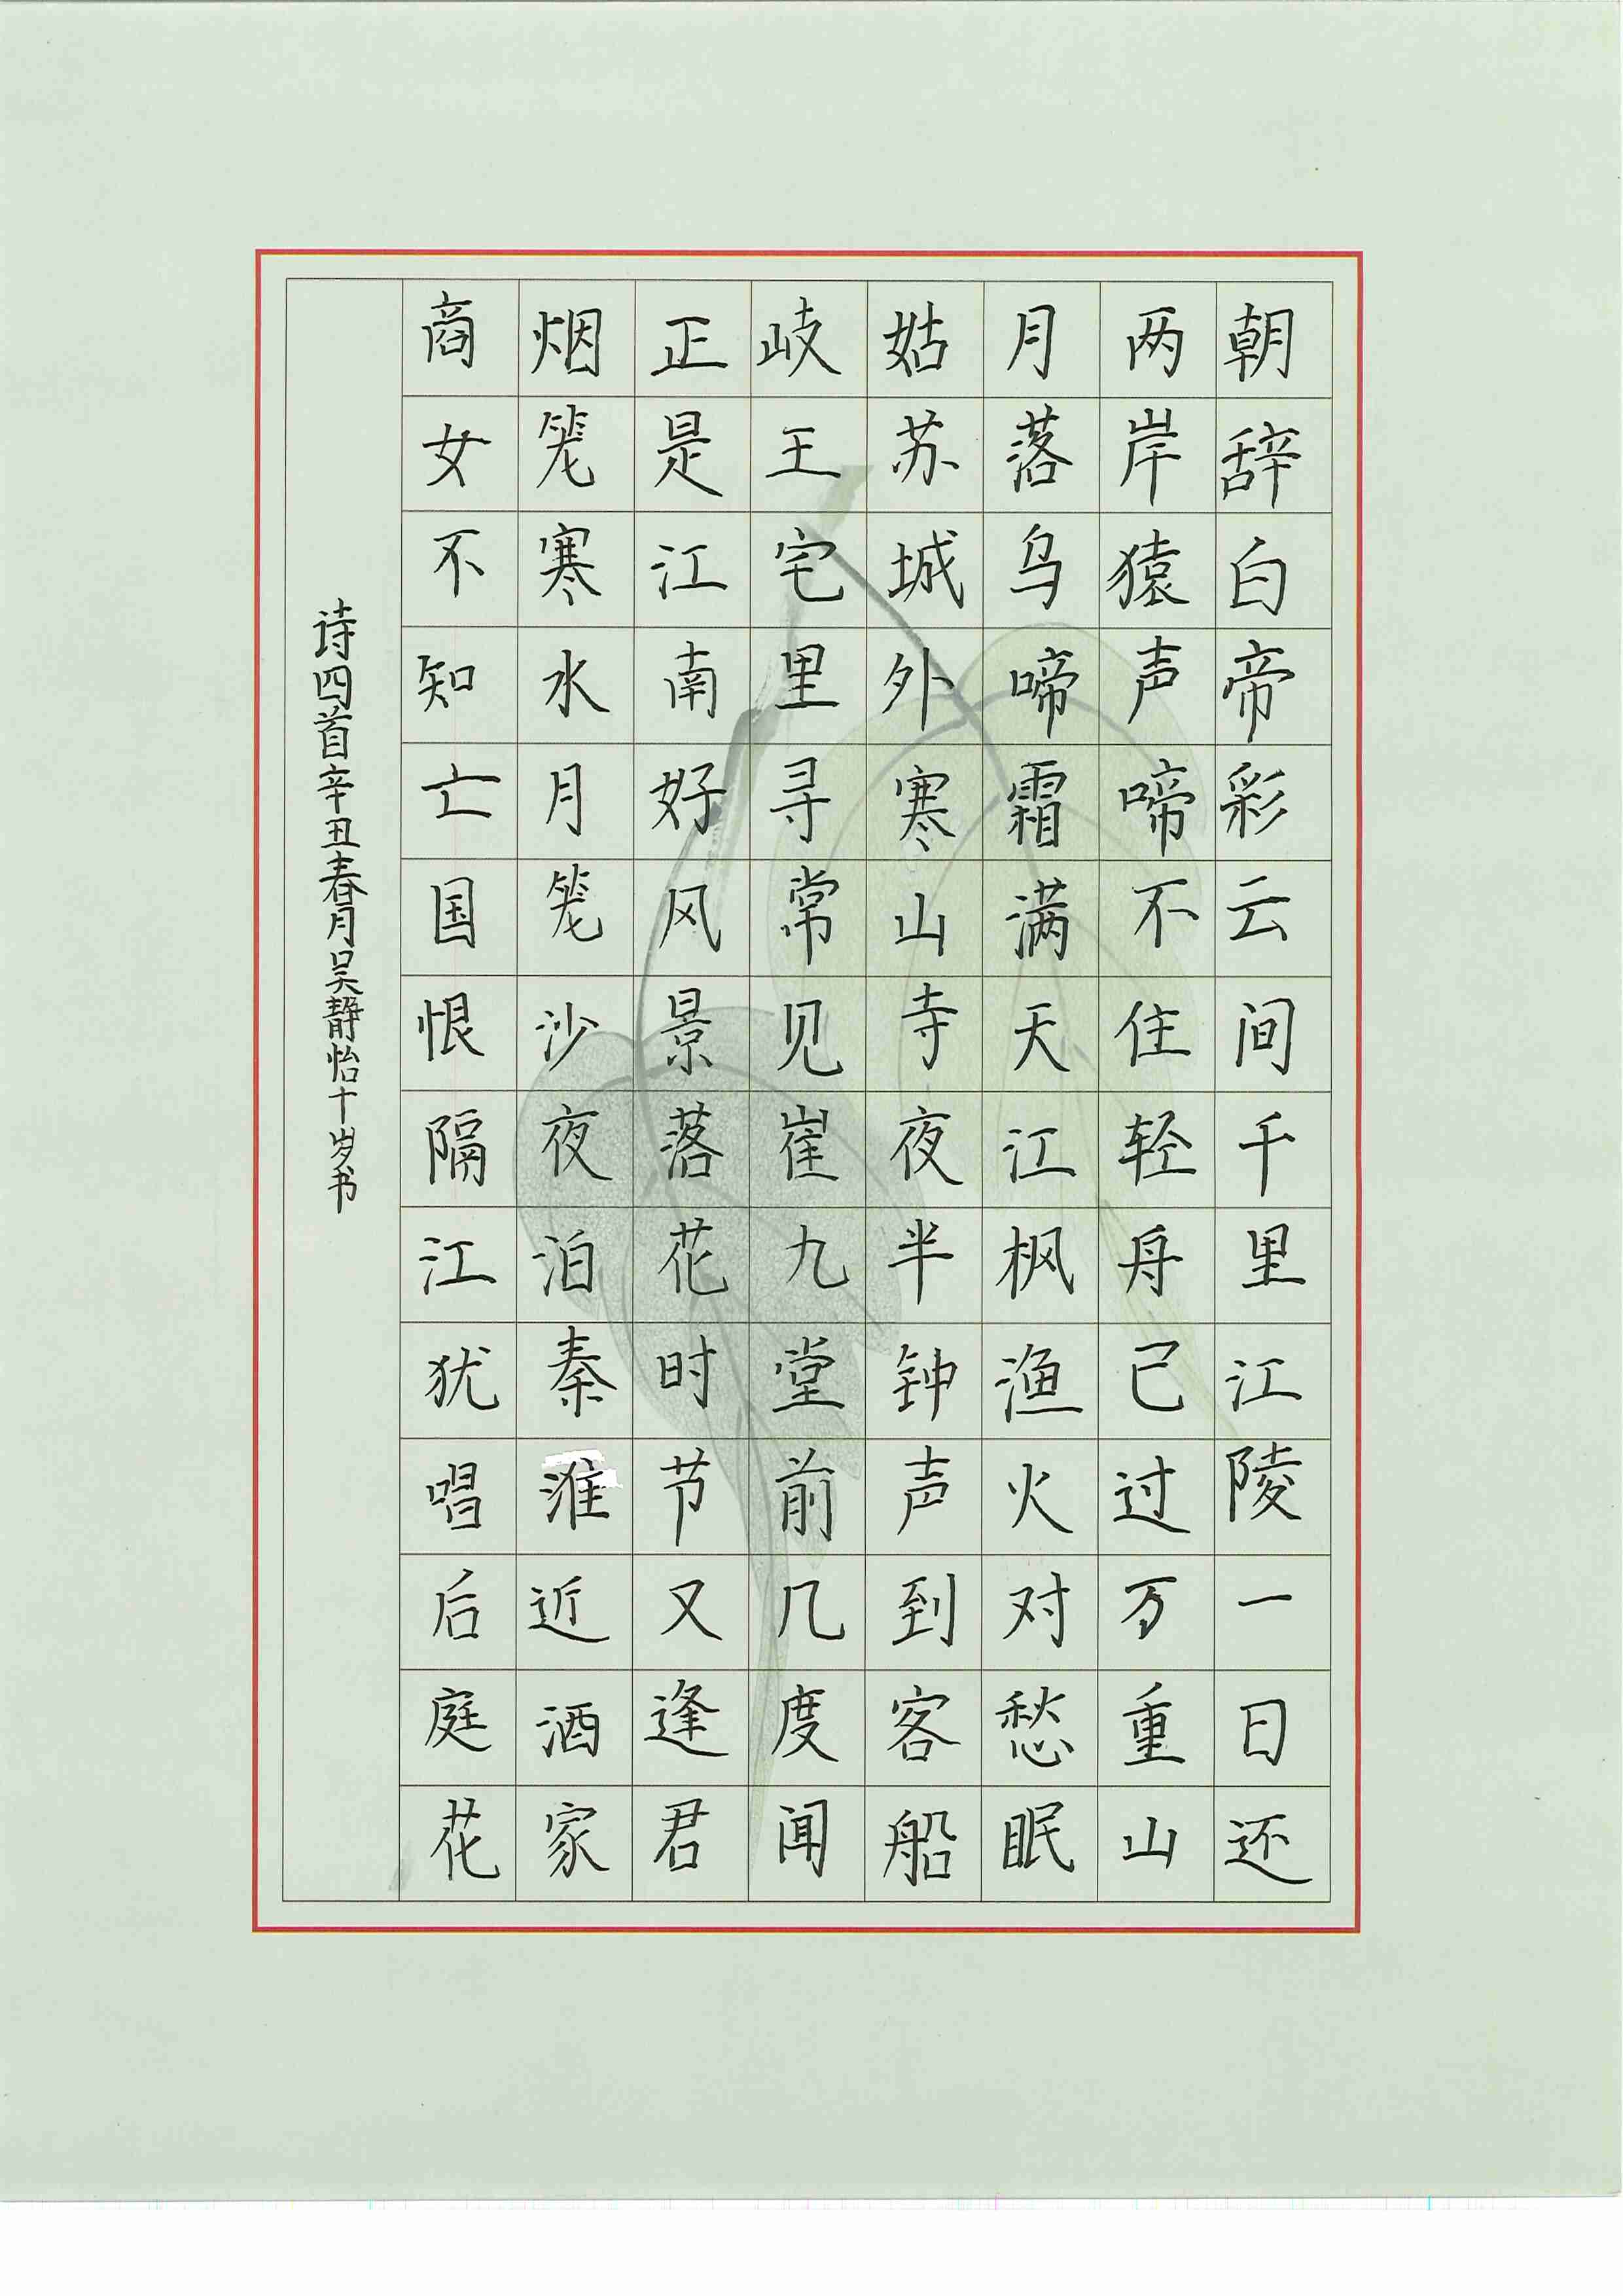 朝辞白帝彩云间千里江陵一日还
两岸猿声啼不住轻舟已过万重山
月落乌啼霜满天江枫渔火对愁眠
姑苏城外寒山寺夜半钟声到客船
岐王宅里寻常见崔九堂前几度闻
正是江南好风景落花时节又逢君
烟笼寒水月笼沙夜泊秦淮近酒家
商女不知亡国恨隔江犹唱后庭花
诗四首辛丑春月吴静怡十岁书